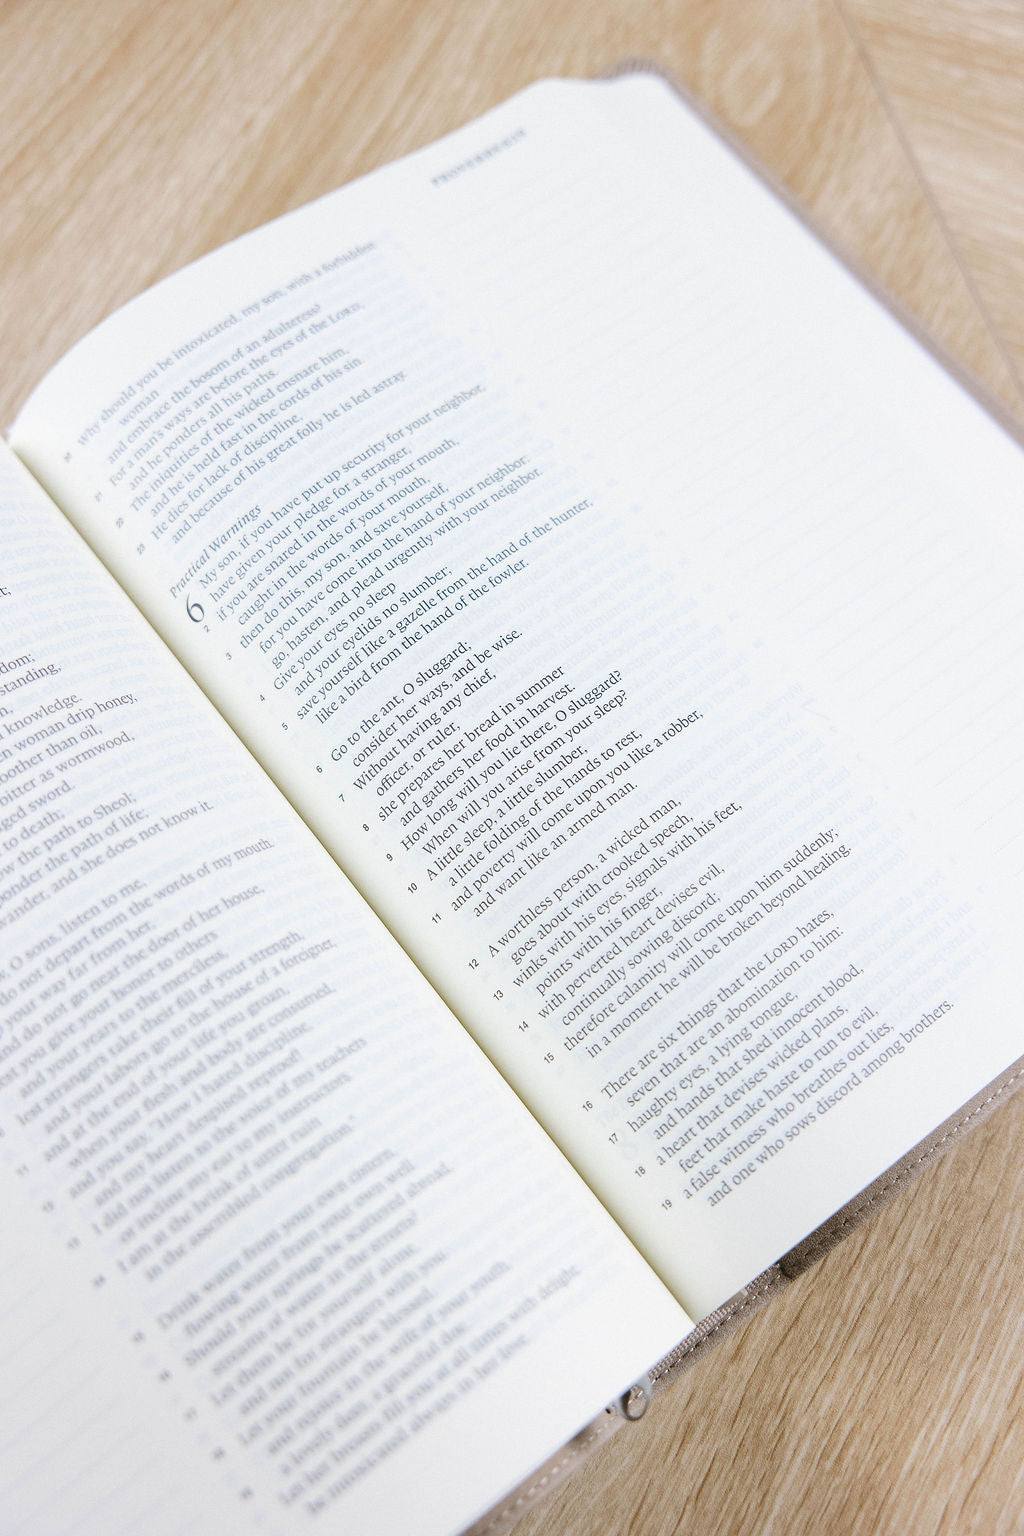 t;
dom;
standing,
n,
knowledge.
en woman drip honey,
oother than oil;
bitter as wormwood,
ged sword.
to death;
w the path to Sheol;
ponder the path of life;
wander, and she does not know it.
O sons, listen to me,
do not depart from the words of my mouth.
your way far from her,
and do not go near the door of her house,
lest you give your honor to others
and your years to the merciless,
lest strangers take their fill of your strength,
and your labors go to the house of a foreigner,
and at the end of your life you groan,
when your flesh and body are consumed,
and you say, "How I hated discipline,
and my heart despised reproof!
I did not listen to the voice of my teachers
or incline my ear to my instructors.
I am at the brink of utter ruin
in the assembled congregation."
Drink water from your own cistern,
flowing water from your own well.
Should your springs be scattered abroad,
streams of water in the streets?
Let them be for yourself alone,
and not for strangers with you.
Let your fountain be blessed,
and rejoice in the wife of your youth,
a lovely deer, a graceful doe.
Let her breasts fill you at all times with delight;
be intoxicated always in her love.
PROVERBS
20 Why should you be intoxicated, my son, with a forbidden
woman
and embrace the bosom of an adulteress?
21 For a man's ways are before the eyes of the LORD,
and he ponders all his paths.
22 The iniquities of the wicked ensnare him,
and he is held fast in the cords of his sin.
23 He dies for lack of discipline,
and because of his great folly he is led astray.
Practical Warnings
6 My son, if you have put up security for your neighbor,
have given your pledge for a stranger,
2 if you are snared in the words of your mouth,
caught in the words of your mouth,
3 then do this, my son, and save yourself,
for you have come into the hand of your neighbor:
go, hasten, and plead urgently with your neighbor.
4 Give your eyes no sleep
and your eyelids no slumber;
5 save yourself like a gazelle from the hand of the hunter,
like a bird from the hand of the fowler.
6 Go to the ant, O sluggard;
consider her ways, and be wise.
7 Without having any chief,
officer, or ruler,
8 she prepares her bread in summer
and gathers her food in harvest.
9 How long will you lie there, O sluggard?
When will you arise from your sleep?
10 A little sleep, a little slumber,
a little folding of the hands to rest,
11 and poverty will come upon you like a robber,
and want like an armed man.
12 A worthless person, a wicked man,
goes about with crooked speech,
13 winks with his eyes, signals with his feet,
points with his finger,
14 with perverted heart devises evil,
continually sowing discord;
15 therefore calamity will come upon him suddenly;
in a moment he will be broken beyond healing.
16 There are six things that the LORD hates,
seven that are an abomination to him:
17 haughty eyes, a lying tongue,
and hands that shed innocent blood,
18 a heart that devises wicked plans,
feet that make haste to run to evil,
19 a false witness who breathes out lies,
and one who sows discord among brothers.